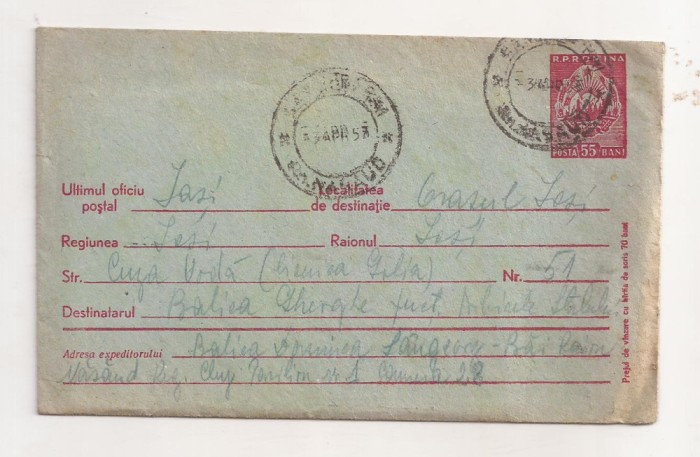 R.P.ROMINA
POSTA 55 BANI
3 APR 57
Ultimul oficiu poștal Iași Localitatea de destinație Orașul Iași
Regiunea Iași Raionul Iași
Str. Cuza Vodă (Clinica Golia) Nr. 51
Destinatarul Balica Gherge funcț Arhivele Statului
Adresa expeditorului Balica Sângeorz-Băi Raion
Năsăud Reg. Cluj Pavilion nr 1 Camera 28
Prețul de vînzare cu hîrtia de scris 70 bani